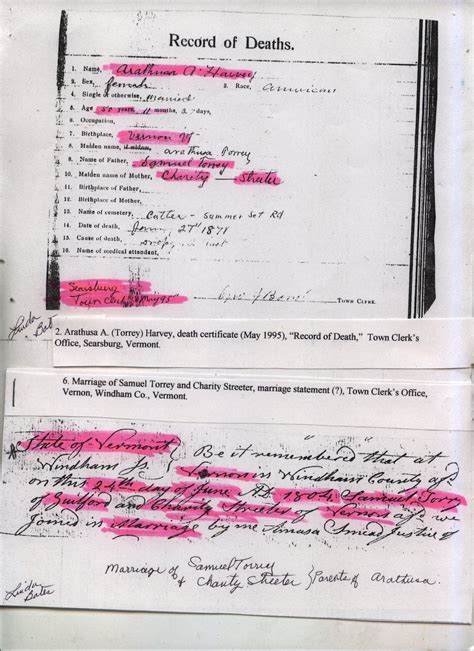 Record of Deaths.
1. Name, Arathusa A Harvey
2. Sex, female 3. Race, American
4. Single or otherwise, Married
5. Age 50 years, 11 months, 2 days,
6. Occupation,
7. Birthplace, Vernon Vt
8. Maiden name, if maiden, Arathusa Torrey
9. Name of Father, Samuel Torrey
10. Maiden name of Mother, Charity Streeter
11. Birthplace of Father,
12. Birthplace of Mother,
13. Name of cemetery, Cutler - Summer Set Rd
14. Date of death, 27th 1871
15. Cause of death,
16. Name of medical attendant,
Searsburg
Town Clerk May 95
TOWN CLERK.
Linda
Bates
2. Arathusa A. (Torrey) Harvey, death certificate (May 1995), "Record of Death," Town Clerk's
Office, Searsburg, Vermont.
6. Marriage of Samuel Torrey and Charity Streeter, marriage statement (?), Town Clerk's Office,
Vernon, Windham Co., Vermont.
State of Vermont } Be it remembered that at
Windham Ss. } Vernon in Windham County afs
on this 24th day of June AD. 1804 Samuel Torry
of Guilford and Charity Streeter of Vernon afs we
Joined in Marriage by me Amasa Smead Justice of
Marriage of Samuel Torrey
& Charity Streeter } Parents of Arathusa.
Linda
Bates